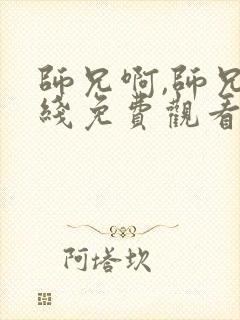 師兄啊,師兄
綫免費觀看
阿塔坎